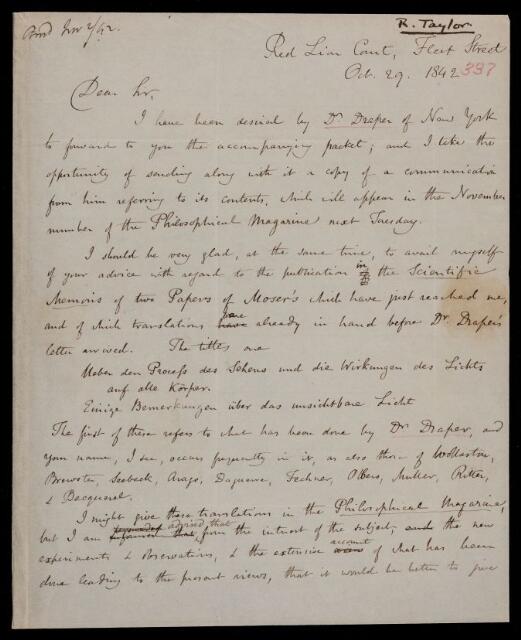 Recd Nov 2/42.
R. Taylor
Red Lion Court, Fleet Street
Oct. 29. 1842 337
Dear Sir,
I have been desired by Dr. Draper of New York
to forward to you the accompanying packet; and I take this
opportunity of sending along with it a copy of a communication
from him referring to its contents, which will appear in the November
number of the Philosophical Magazine next Tuesday.
I should be very glad, at the same time, to avail myself
of your advice with regard to the publication in the Scientific
Memoirs of two Papers of Moser's which have just reached me,
and of which translations were already in hand before Dr Draper's
letter arrived. The titles are
Ueber den Process des Sehens und die Wirkungen des Lichts
auf alle Körper.
Einige Bemerkungen über das unsichtbare Licht
The first of these refers to what has been done by Dr Draper, and
your name, I see, occurs frequently in it, as also those of Wollaston,
Brewster, Seebeck, Arago, Daguerre, Fechner, Olbers, Muller, Ritter,
& Becquerel.
I might give these translations in the Philosophical Magazine,
but I am advised that, from the interest of the subject, the new
experiments & observations, & the extensive account of what has been
done leading to the present views, that it would be better to give